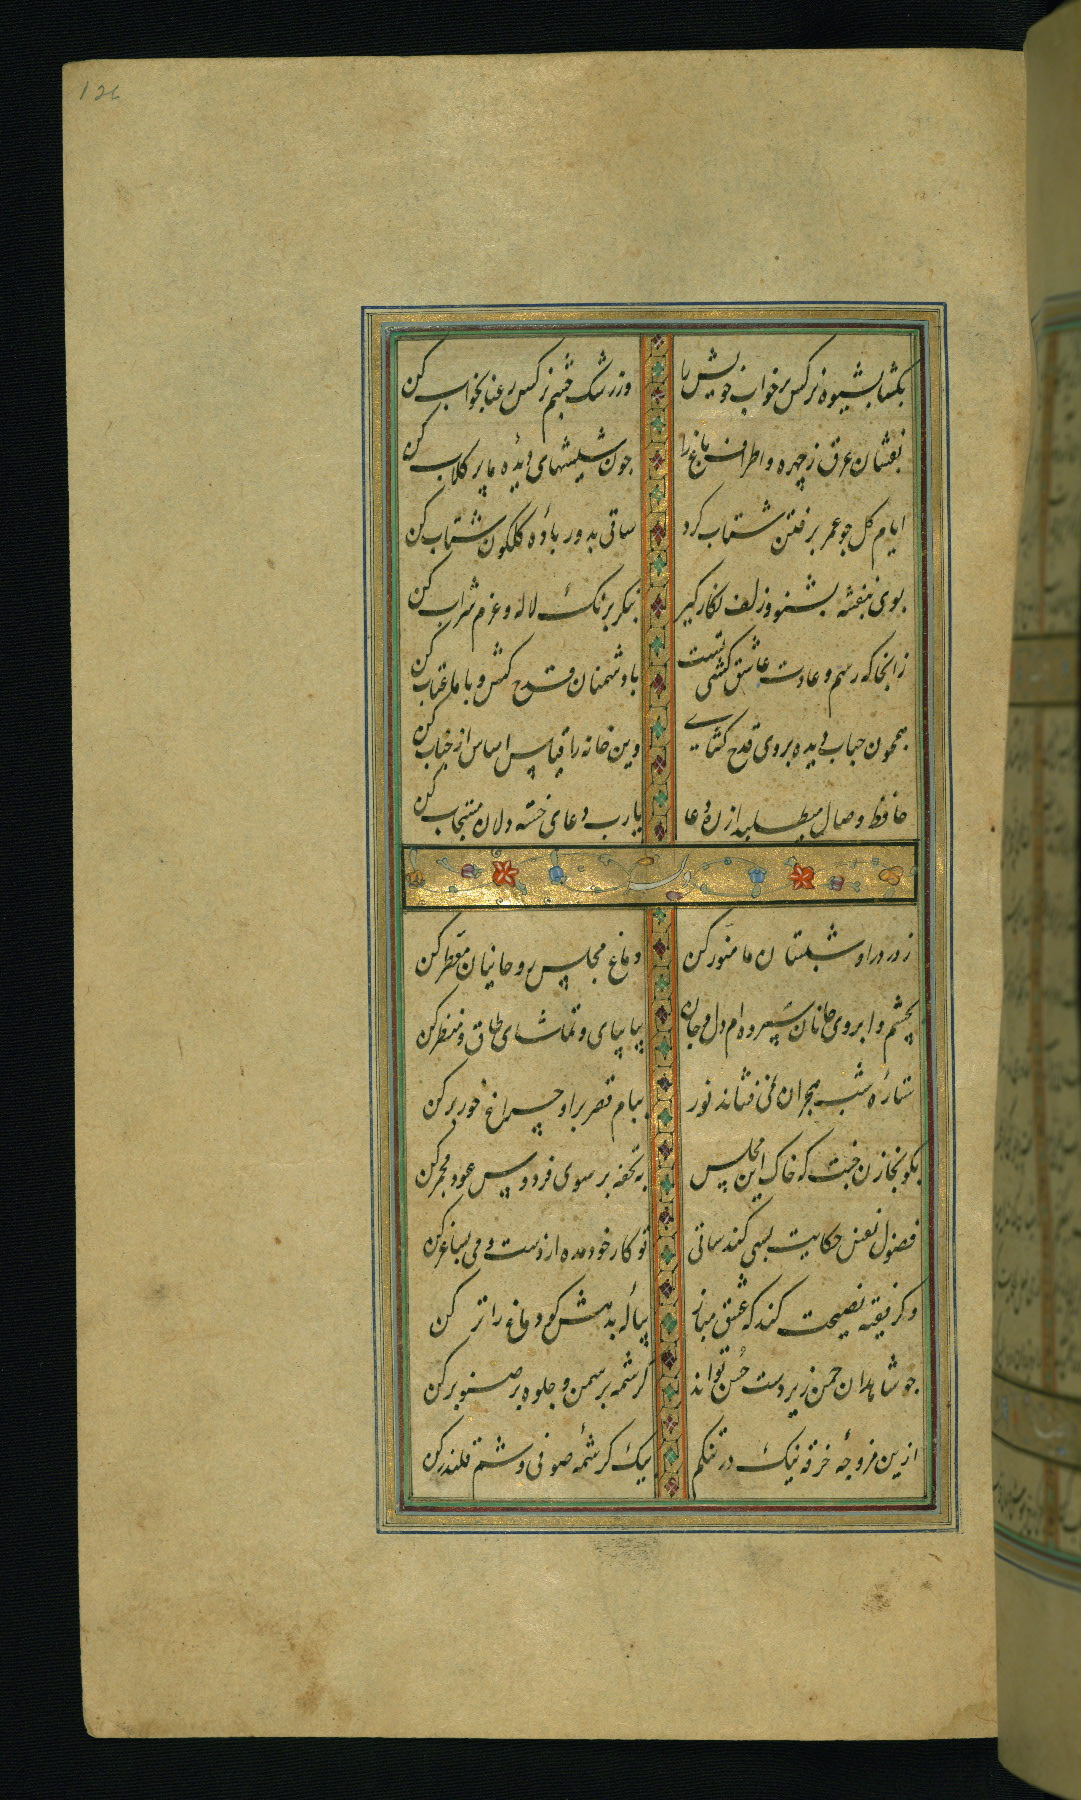 126
بکشا بشیوه نرکس پر خواب خویش را وز رشک چشم نرکس رعنا بخواب کن
بفشان عرق ز چهره و اطراف باغ را جون شیشهای دیده ما پر کلاب کن
ایام کل جو عمر برفتن شتاب کرد ساقی بدور باده کلکون شتاب کن
بوی بنفشه بشنو و زلف نکار کیر بنکر برنک لاله و عزم شراب کن
زانجا که رسم و عادت عاشق کشی تست با دشمنان قدح کش و با ما عتاب کن
همچون حباب دیده بروی قدح کشای وین خانه را قیاس اساس از حباب کن
حافظ وصال میطلبد از ره دعا یارب دعای خسته دلان مستجاب کن
وله
ز در درا و شبستان ما منور کن دماغ مجلس روحانیان معطر کن
بچشم و ابروی جانان سپرده ام دل و جان بیا بیای و تماشای طاق و منظر کن
ستاره شب هجران نمی فشاند نور ببام قصر برا و چراغ خور بر کن
بکو بخازن جنت که خاک این مجلس به تحفه بر سوی فردوس عود مجمر کن
فضول نفس حکایت بسی کند ساقی تو کار خود مده از دست و می بساغر کن
وکر فقیه نصیحت کند که عشق مباز پیاله بدهش کو دماغ را تر کن
جو شاهدان جمن زیر دست حسن تواند کرشمه بر سمن و جلوه بر صنوبر کن
ازین مزوجه خرقه نیک در تنکم بیک کرشمه صوفی وشم قلندر کن